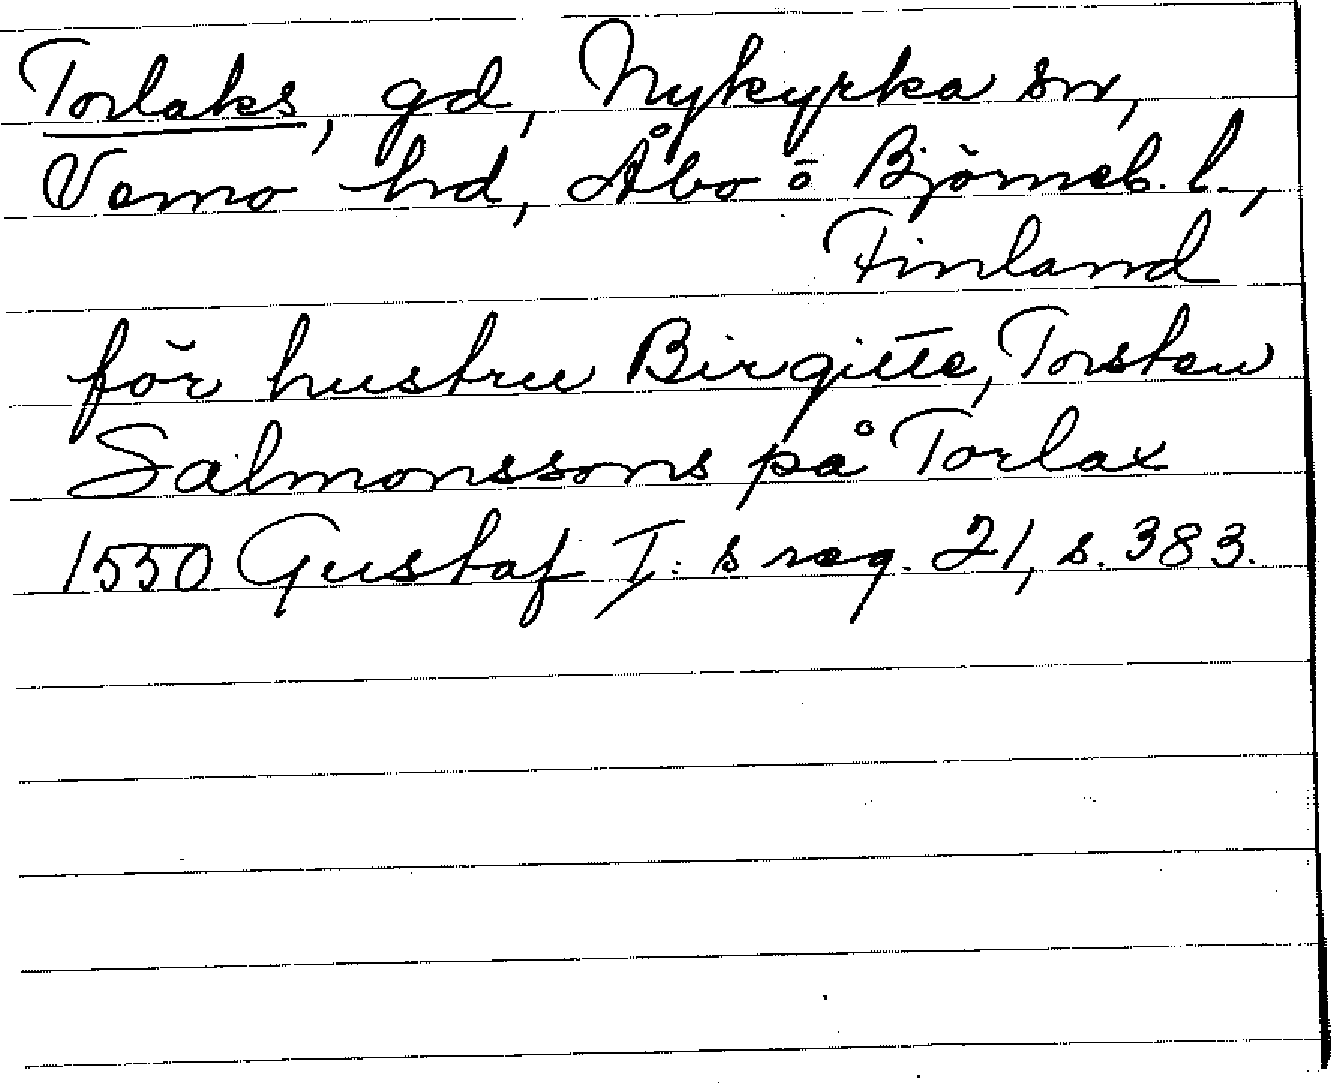 Torlaks, gd, Nykyrka sn,
Vemo hd, Åbo o Björneb. l.,
Finland
för hustru Birgitte, Torsten
Salmonssons på Torlax
1550 Gustaf I: s reg. 21, s. 383.